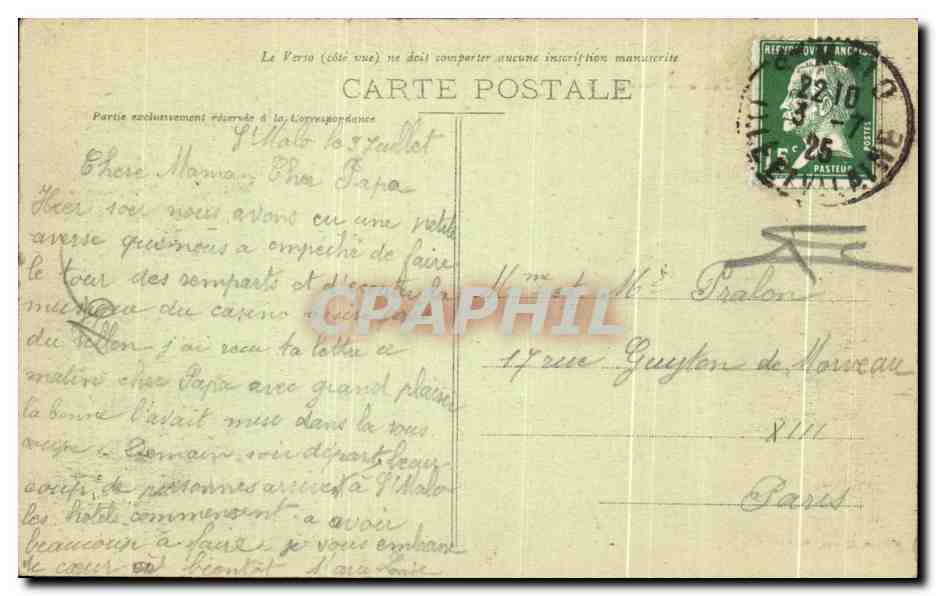 Le Verso (côté vue) ne doit comporter aucune inscription manuscrite
CARTE POSTALE
Partie exclusivement réservée à la Correspondance
St Malo le 3 Juillet
Chère Maman Cher Papa
Hier soir nous avons eu une petite
averse qui nous a empeché de faire
le tour des remparts et d'écouter la
musique du casino
du j'ai reçu ta lettre ce
matin cher Papa avec grand plaisir
la bonne l'avait mise dans la sous
coupe. Demain soir départ beau
coup de personnes arrivent à St Malo
les hotels commencent a avoir
beaucoup à faire je vous embrasse
de cœur bientôt
REPUBLIQUE FRANÇAISE
POSTES
15c
PASTEUR
22 10
3 -7
25
ILLE ET VILAINE
Mme et Mr Pralon
17 rue Guyton de Morveau
XIII
Paris
CPAPHIL